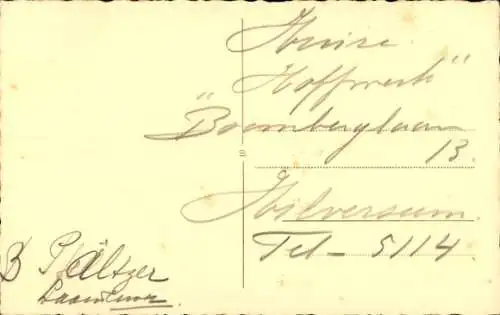 Huize
Hoffwerk"
"Boomberglaan
13.
Hilversum.
Tel - 5114
B Pfältzer